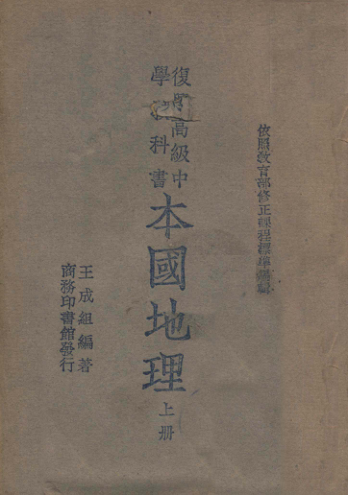 依照教育部修正課程標準編輯
復興高級中
學教科書
本國地理
上册
王成組編著
商務印書館發行